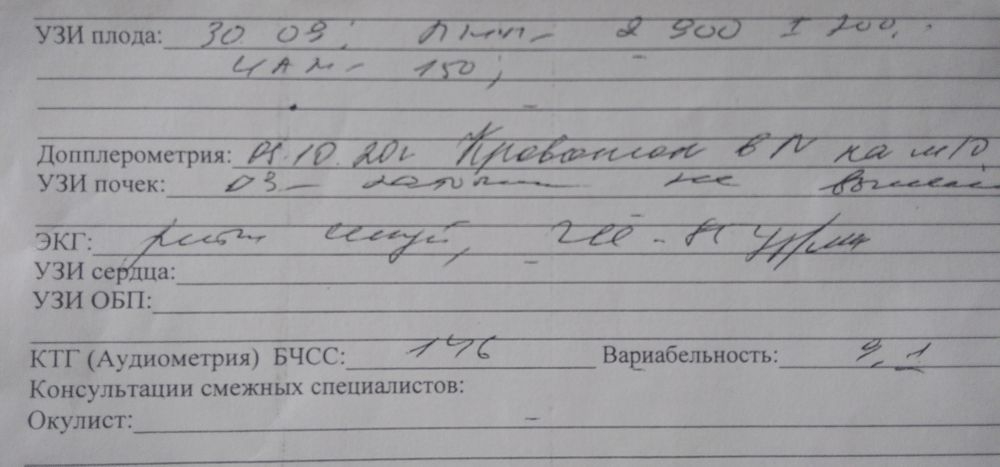 УЗИ плода: 30.09; ПМП- 2 900 ± 200,
ЧАМ- 150;
Допплерометрия: 01.10.20г Кровоток в N на м
УЗИ почек: не
ЭКГ: ритм синус, ЧСС - уд/мин
УЗИ сердца:
УЗИ ОБП:
КТГ (Аудиометрия) БЧСС: 146 Вариабельность: 9,1
Консультации смежных специалистов:
Окулист: –